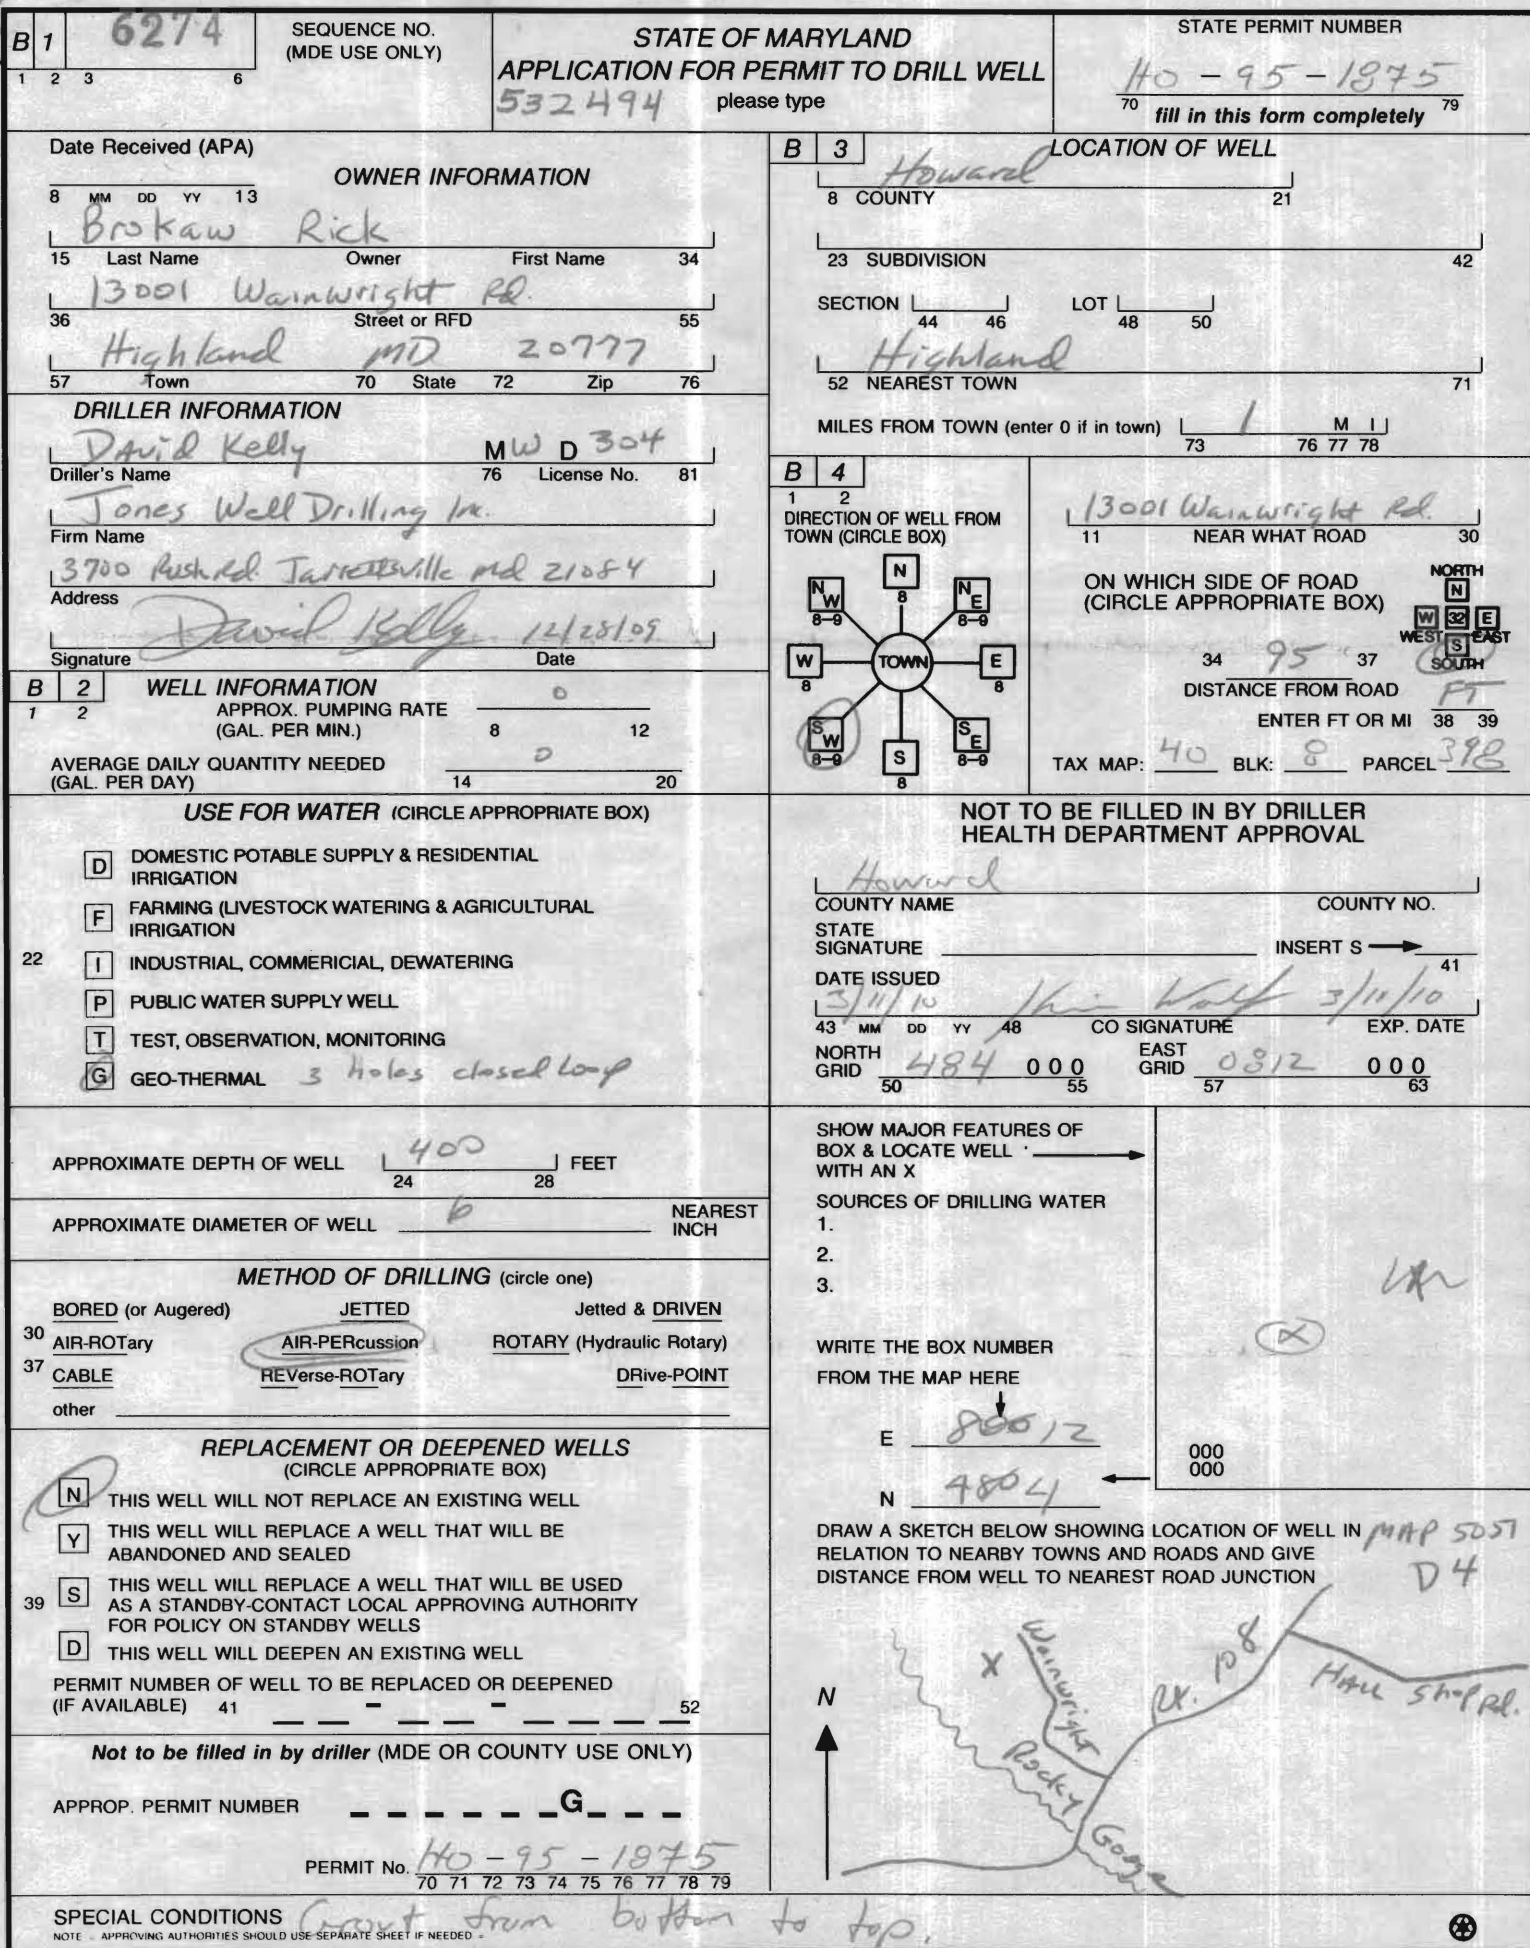 B 1 6274 SEQUENCE NO. (MDE USE ONLY)
1 2 3 6
STATE OF MARYLAND
APPLICATION FOR PERMIT TO DRILL WELL
532494 please type
STATE PERMIT NUMBER
HO - 95 - 1875
70 79
fill in this form completely
Date Received (APA)
OWNER INFORMATION
8 MM DD YY 13
Brokaw Rick
15 Last Name Owner First Name 34
13001 Wainwright Rd.
36 Street or RFD 55
Highland MD 20777
57 Town 70 State 72 Zip 76
DRILLER INFORMATION
David Kelly MW D 304
Driller's Name 76 License No. 81
Jones Well Drilling Inc.
Firm Name
3700 Rush Rd. Jarrettsville Md 21084
Address
David Kelly 12/28/09
Signature Date
B 2 WELL INFORMATION
1 2 APPROX. PUMPING RATE 0
(GAL. PER MIN.) 8 12
AVERAGE DAILY QUANTITY NEEDED 0
(GAL. PER DAY) 14 20
USE FOR WATER (CIRCLE APPROPRIATE BOX)
D DOMESTIC POTABLE SUPPLY & RESIDENTIAL
IRRIGATION
F FARMING (LIVESTOCK WATERING & AGRICULTURAL
IRRIGATION
22 I INDUSTRIAL, COMMERICIAL, DEWATERING
P PUBLIC WATER SUPPLY WELL
T TEST, OBSERVATION, MONITORING
G GEO-THERMAL 3 Holes closed Loop
APPROXIMATE DEPTH OF WELL 400 FEET
24 28
APPROXIMATE DIAMETER OF WELL 6 NEAREST
INCH
METHOD OF DRILLING (circle one)
BORED (or Augered) JETTED Jetted & DRIVEN
30 AIR-ROTary AIR-PERcussion ROTARY (Hydraulic Rotary)
37 CABLE REVerse-ROTary DRive-POINT
other
REPLACEMENT OR DEEPENED WELLS
(CIRCLE APPROPRIATE BOX)
N THIS WELL WILL NOT REPLACE AN EXISTING WELL
Y THIS WELL WILL REPLACE A WELL THAT WILL BE
ABANDONED AND SEALED
39 S THIS WELL WILL REPLACE A WELL THAT WILL BE USED
AS A STANDBY-CONTACT LOCAL APPROVING AUTHORITY
FOR POLICY ON STANDBY WELLS
D THIS WELL WILL DEEPEN AN EXISTING WELL
PERMIT NUMBER OF WELL TO BE REPLACED OR DEEPENED
(IF AVAILABLE) 41 - - 52
Not to be filled in by driller (MDE OR COUNTY USE ONLY)
APPROP. PERMIT NUMBER G
PERMIT No. HO - 95 - 1875
70 71 72 73 74 75 76 77 78 79
B 3 LOCATION OF WELL
Howard
8 COUNTY 21
23 SUBDIVISION 42
SECTION LOT
44 46 48 50
Highland
52 NEAREST TOWN 71
MILES FROM TOWN (enter 0 if in town) 1 M I
73 76 77 78
B 4
1 2
DIRECTION OF WELL FROM
TOWN (CIRCLE BOX)
N
8
NW NE
8-9 8-9
W TOWN E
8 8
SW SE
8-9 8-9
S
8
13001 Wainwright Rd.
11 NEAR WHAT ROAD 30
ON WHICH SIDE OF ROAD
(CIRCLE APPROPRIATE BOX)
NORTH
N
W 32 E
WEST EAST
S
SOUTH
34 95 37
DISTANCE FROM ROAD FT
ENTER FT OR MI 38 39
TAX MAP: 40 BLK: 8 PARCEL 398
NOT TO BE FILLED IN BY DRILLER
HEALTH DEPARTMENT APPROVAL
Howard
COUNTY NAME COUNTY NO.
STATE
SIGNATURE INSERT S
41
DATE ISSUED
3/11/10 3/11/10
43 MM DD YY 48 CO SIGNATURE EXP. DATE
NORTH GRID 484 000 EAST GRID 0812 000
50 55 57 63
SHOW MAJOR FEATURES OF
BOX & LOCATE WELL
WITH AN X
SOURCES OF DRILLING WATER
1.
2.
3.
X
WRITE THE BOX NUMBER
FROM THE MAP HERE
E 80012
N 4804
000
000
DRAW A SKETCH BELOW SHOWING LOCATION OF WELL IN
RELATION TO NEARBY TOWNS AND ROADS AND GIVE
DISTANCE FROM WELL TO NEAREST ROAD JUNCTION
MAP 5051
D4
N
X
Wainwright
Rt. 108
Hall Shop Rd.
Rocky Gorge
SPECIAL CONDITIONS Grout from bottom to top.
NOTE - APPROVING AUTHORITIES SHOULD USE SEPARATE SHEET IF NEEDED -